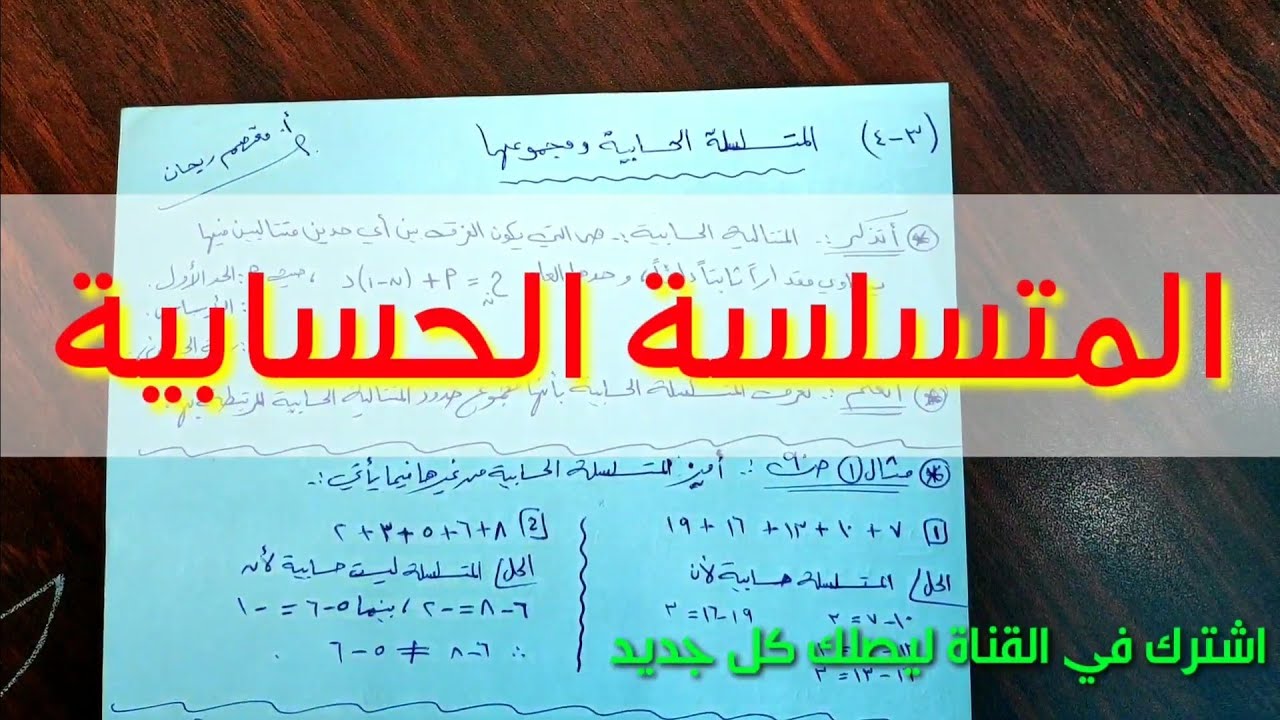 (٣-٤) المتسلسلة الحسابية ومجموعها
أ. معتصم ريحان
أتذكر :. المتتالية الحسابية :. هي التي يكون الفرق بين أي حدين متتاليين فيها
مقداراً ثابتاً دائماً، وحدها العام ح ن = م + (ن-١)د ، حيث م : الحد الأول.
: الأساس.
المتسلسة الحسابية
أتعلم :. تعرف المتسلسلة الحسابية بأنها مجموع حدود المتتالية الحسابية المرتبطة بها.
* مثال ① ص ٩ :. أميز المتسلسلة الحسابية من غيرها فيما يأتي :.
1 ٧ + ١٠ + ١٣ + ١٦ + ١٩
الحل / المتسلسلة حسابية لأن
١٠-٧ = ٣ ١٩-١٦ = ٣
١٦-١٣ = ٣
2 ٨+٦+٥+٣+٢
الحل / المتسلسلة ليست حسابية لأن
٦-٨ = -٢ ، بينما ٥-٦ = -١
∴ ٦-٨ ≠ ٥-٦ .
اشترك في القناة ليصلك كل جديد